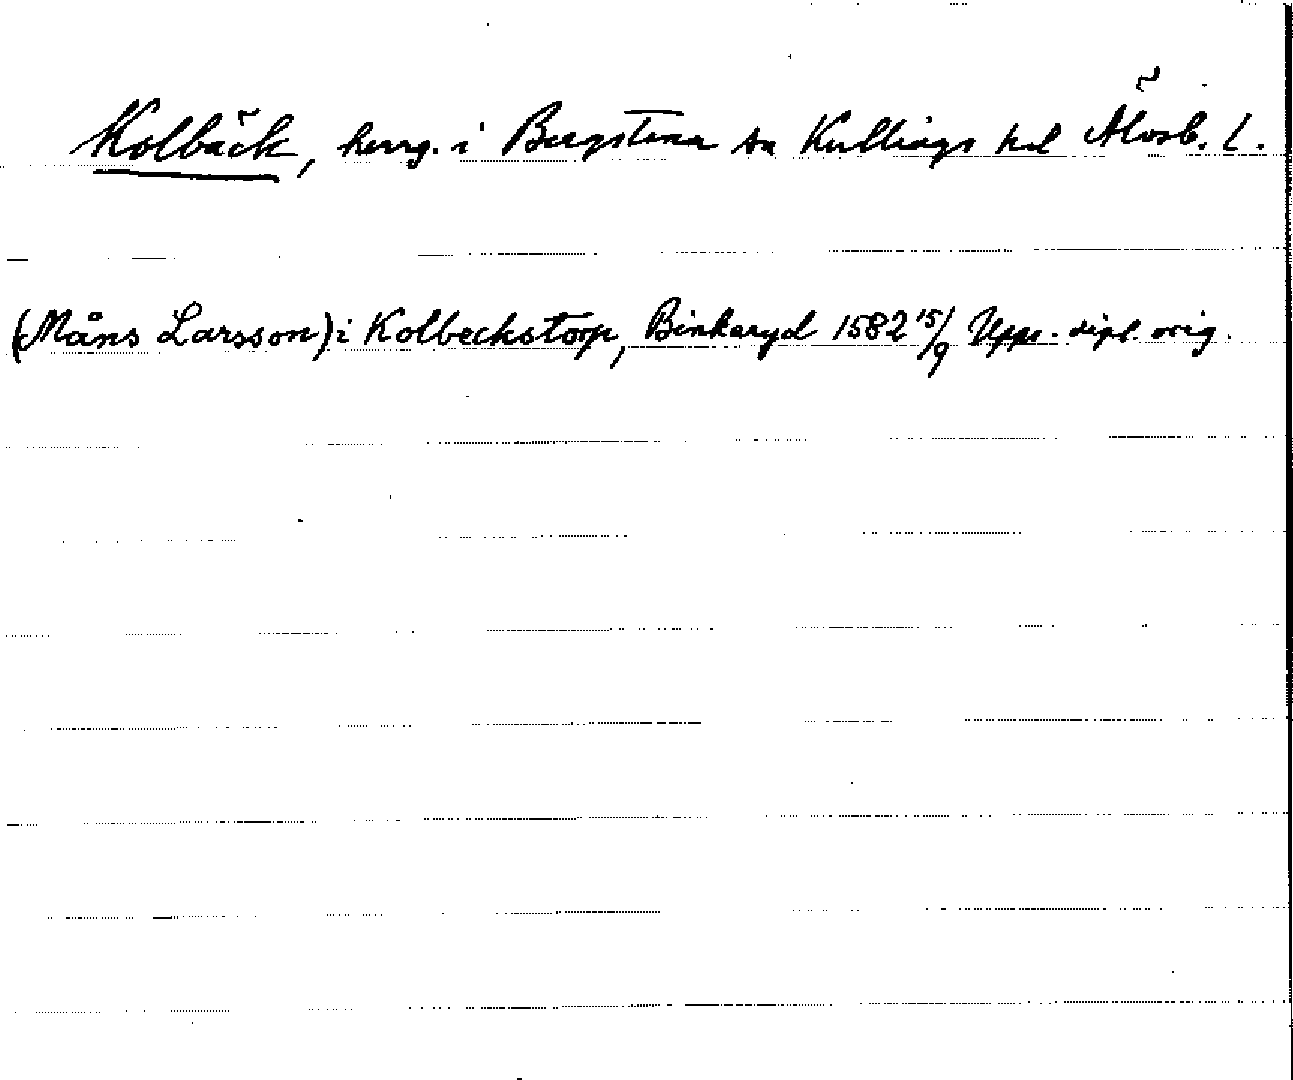 Kolbäck, herrg. i Bergstena sn Kullings hd Älvsb. l.
(Måns Larsson) i Kolbeckstorp, Binkaryd 1582 15/9 Upps. dipl. orig.